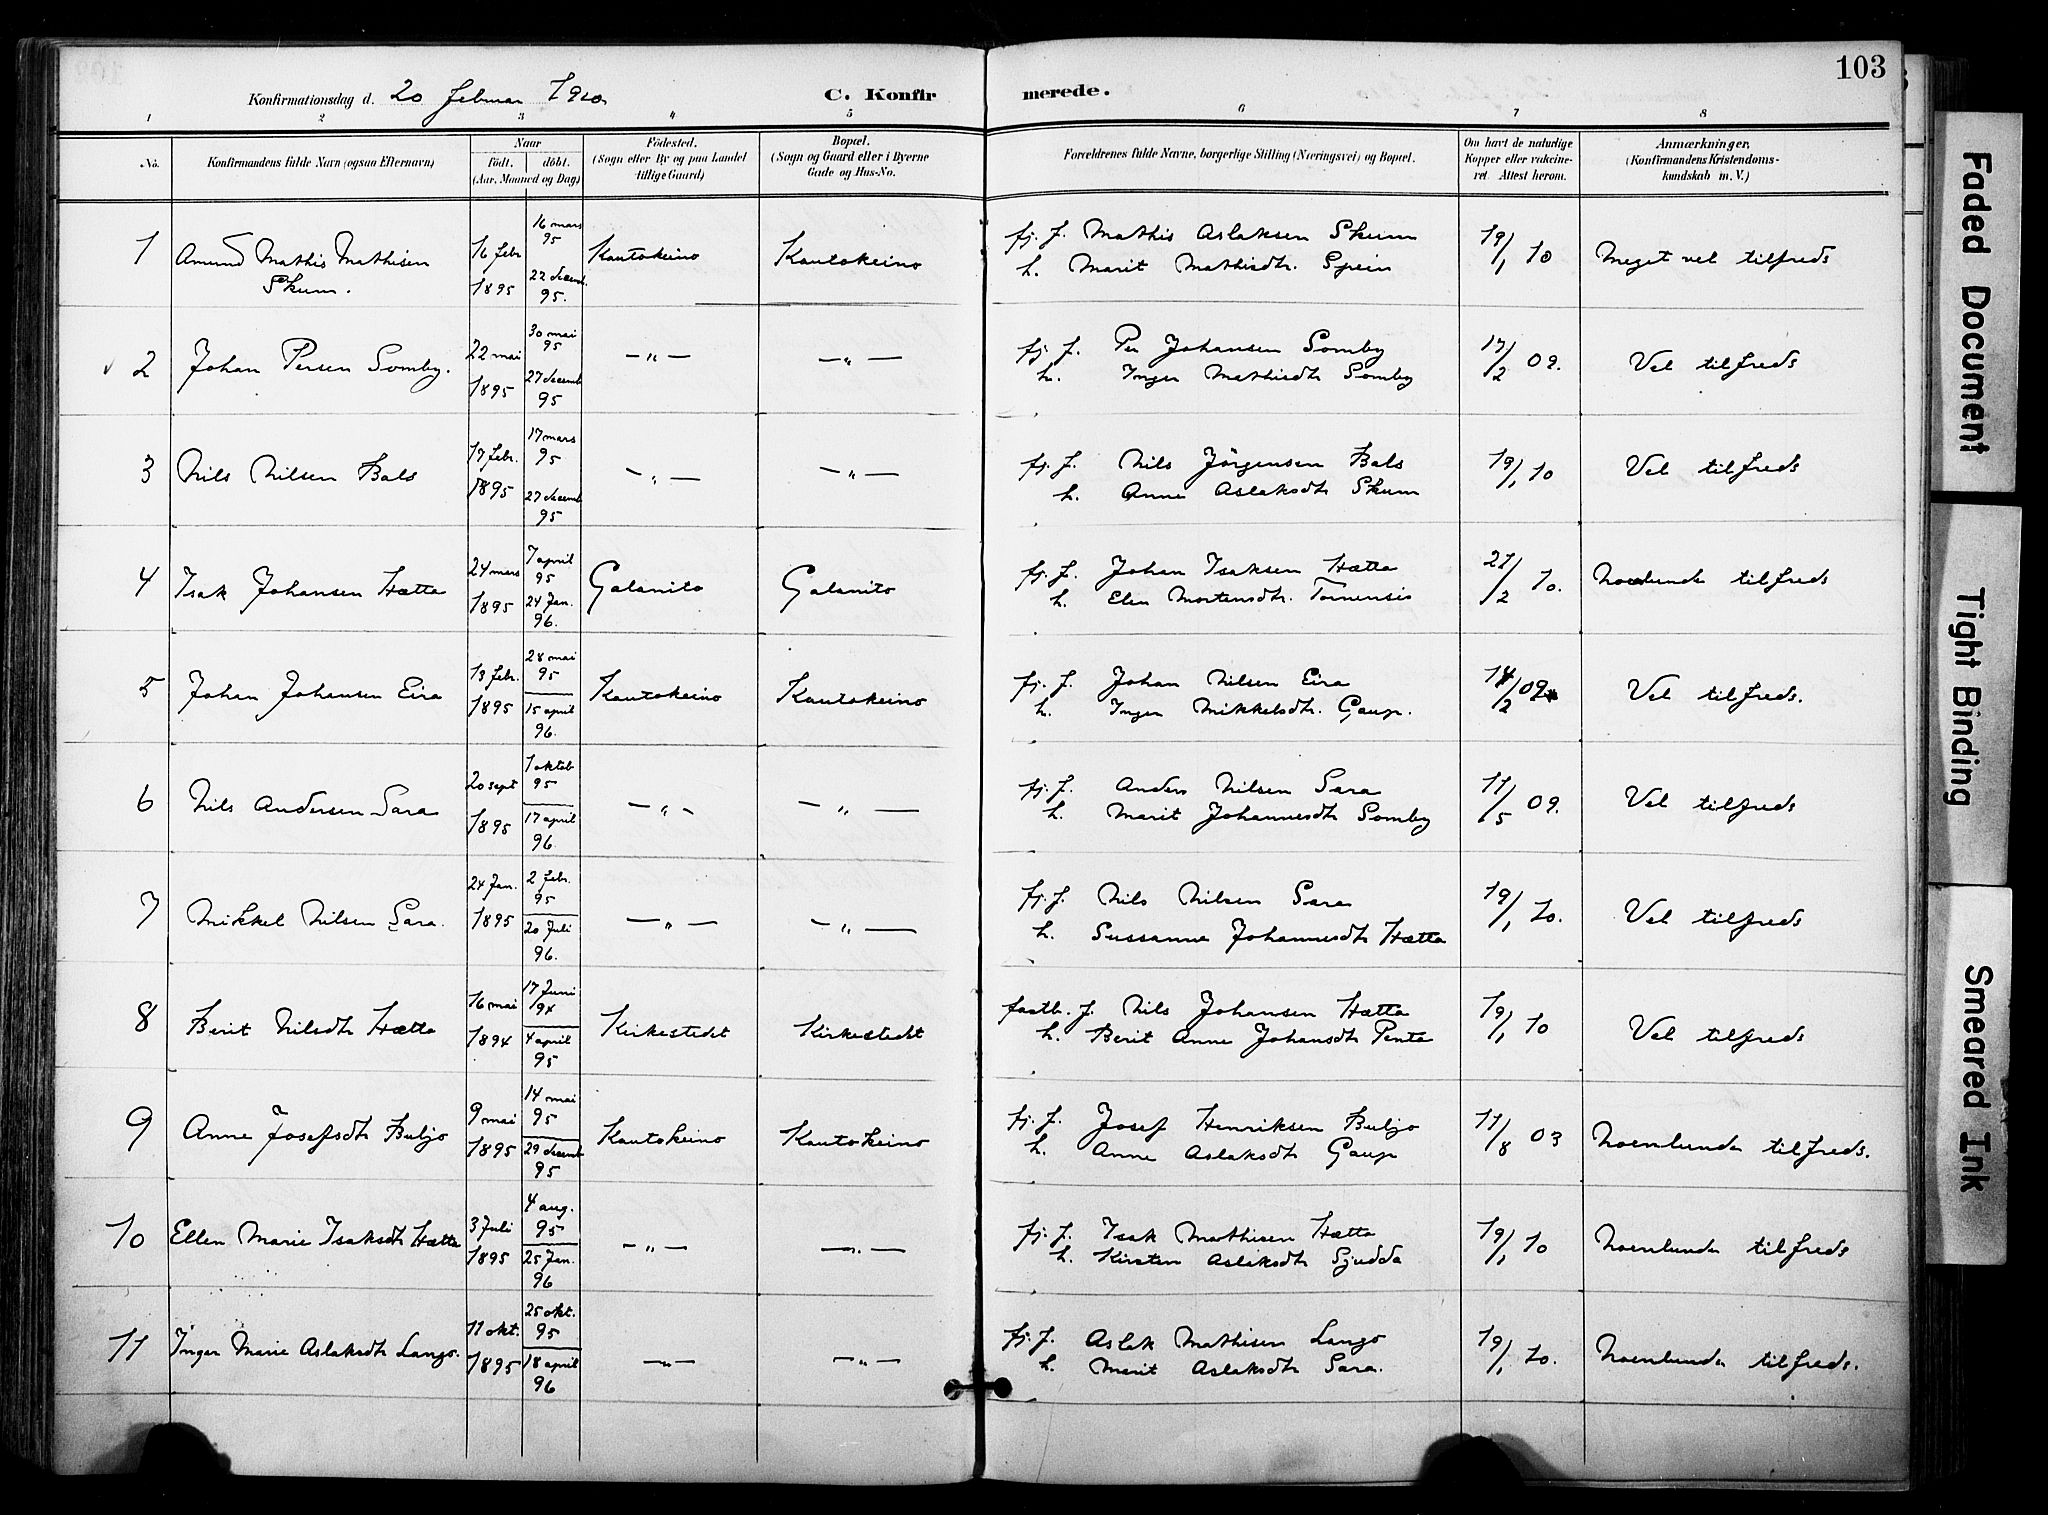 103
Konfirmationsdag d. 20 februar 1910.
C. Konfirmerede.
1 2 3 4 5 6 7 8
No. Konfirmandens fulde Navn (ogsaa Efternavn) Naar født. døbt. (Aar, Maaned og Dag) Fødested. (Sogn eller By og paa Landet tillige Gaard) Bopæl. (Sogn og Gaard eller i Byerne Gade og Hus-No. Forældrenes fulde Navne, borgerlige Stilling (Næringsvei) og Bopæl. Om havt de naturlige Kopper eller vakcineret. Attest herom. Anmærkninger, (Konfirmandens Kristendomskundskab m. V.)
1 Amund Mathis Mathisen Skum. 16 febr 1895 16 mars 95 22 decemb. 95. Kautokeino Kautokeino fj. f. Mathis Aslaksen Skum 19/1 10 Meget vel tilfreds
h. Marit Mathisdtr. Spein
2 Johan Persen Somby. 22 mai 1895 30 mai 95 27 decemb 95 —„— —„— fj. f. Per Johansen Somby 17/2 09. Vel tilfreds
h. Inger Mathisdtr Somby
3 Nils Nilsen Bals 17 febr. 1895 17 mars 95 27 decemb 95 —„— —„— fj. f. Nils Jörgensen Bals 19/1 10 Vel tilfreds
h. Anne Aslaksdtr Skum
4 Isak Johansen Hætta 24 mars 1895 7 april 95 24 Jan. 96. Galanito Galanito fj. f. Johan Isaksen Hætta 21/2 10. Noenlunde tilfreds
h. Elen Mortensdtr. Tornensis
5 Johan Johansen Eira 13 febr. 1895 28 mai 95 15 april 96. Kautokeino Kautokeino fj. f. Johan Nilsen Eira 17/2 09. Vel tilfreds.
h. Inger Mikkelsdtr. Gaup.
6 Nils Andersen Sara 20 sept 1895 1 oktob 95 17 april 96. —„— —„— fj. f. Anders Nilsen Sara 11/5 09. Vel tilfreds
h. Marit Johannesdtr Somby
7 Mikkel Nilsen Sara. 24 Jan. 1895 2 febr. 95 20 Juli 96. —„— —„— fj. f. Nils Nilsen Sara 19/1 10. Vel tilfreds
h. Sussanne Johannesdtr Hætta
8 Berit Nilsdtr Hætta 16 mai 1894 17 Juni 94 4 april 95 Kirkestedet Kirkestedet fastb. f. Nils Johansen Hætta 19/1 10 Vel tilfreds
h. Berit Anne Johansdtr Penta
9 Anne Josefsdtr Buljo 9 mai 1895 14 mai 95 29 decemb 95 Kautokeino Kautokeino fj. f. Josef Henriksen Buljo 11/8 03 Noenlunde tilfreds.
h. Anne Aslaksdtr Gaup
10 Ellen Marie Isaksdtr Hætta 3 Juli 1895 4 aug. 95 25 Jan. 96 —„— —„— fj. f. Isak Mathisen Hætta 19/1 10 Noenlunde tilfreds
h. Kirsten Aslaksdtr Sjudda
11 Inger Marie Aslaksdtr Lango. 11 okt. 1895 25 okt. 95 18 april 96 —„— —„— fj. f. Aslak Mathisen Lango 19/1 10. Noenlunde tilfreds.
h. Marit Aslaksdtr Sara.
Faded Document
Tight Binding
Smeared Ink